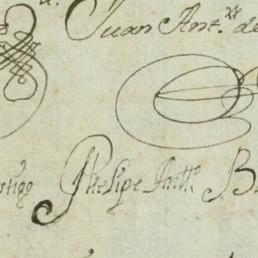 Juan Ant.º de
Phelipe Antt.º B